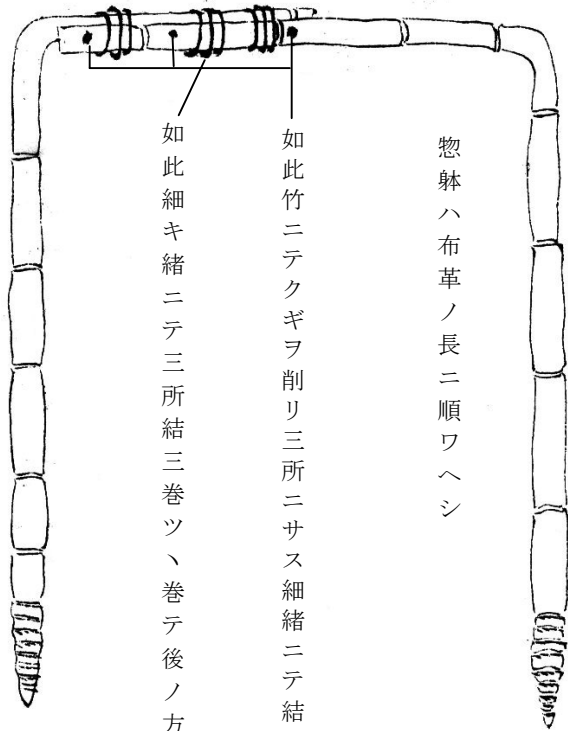 惣躰ハ布革ノ長ニ順ワヘシ
如此竹ニテクギヲ削リ三所ニサス細緒ニテ結
如此細キ緒ニテ三所結三巻ツヽ巻テ後ノ方